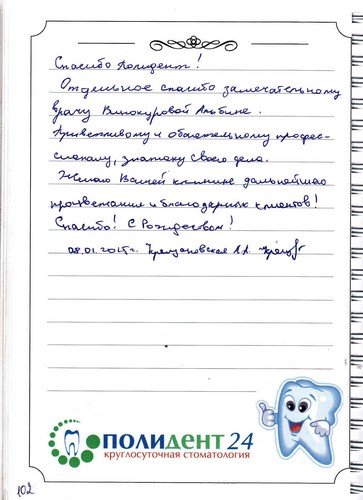 Спасибо Полидент!
Отдельное спасибо замечательному
врачу Винокуровой Альбине.
Приветливому и обаятельному профес-
сионалу, знатоку своего дела.
Желаю Вашей клинике дальнейшего
процветания и благодарных клиентов!
Спасибо! С Рождеством!
08.01.2015г.
ПОЛИДЕНТ 24
круглосуточная стоматология
102